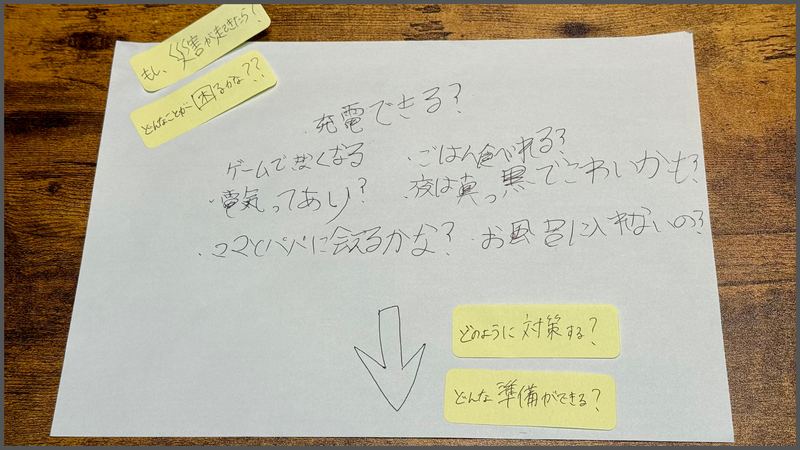 もし、災害が起きたら?
どんなことが困るかな??
・充電できる?
ゲームできなくなる
・ごはん食べれる?
・電気ってあり?
・夜は真っ黒でこわいかも?
・ママとパパに会えるかな?
・お風呂に入れないの?
どのように対策する?
どんな準備ができる?